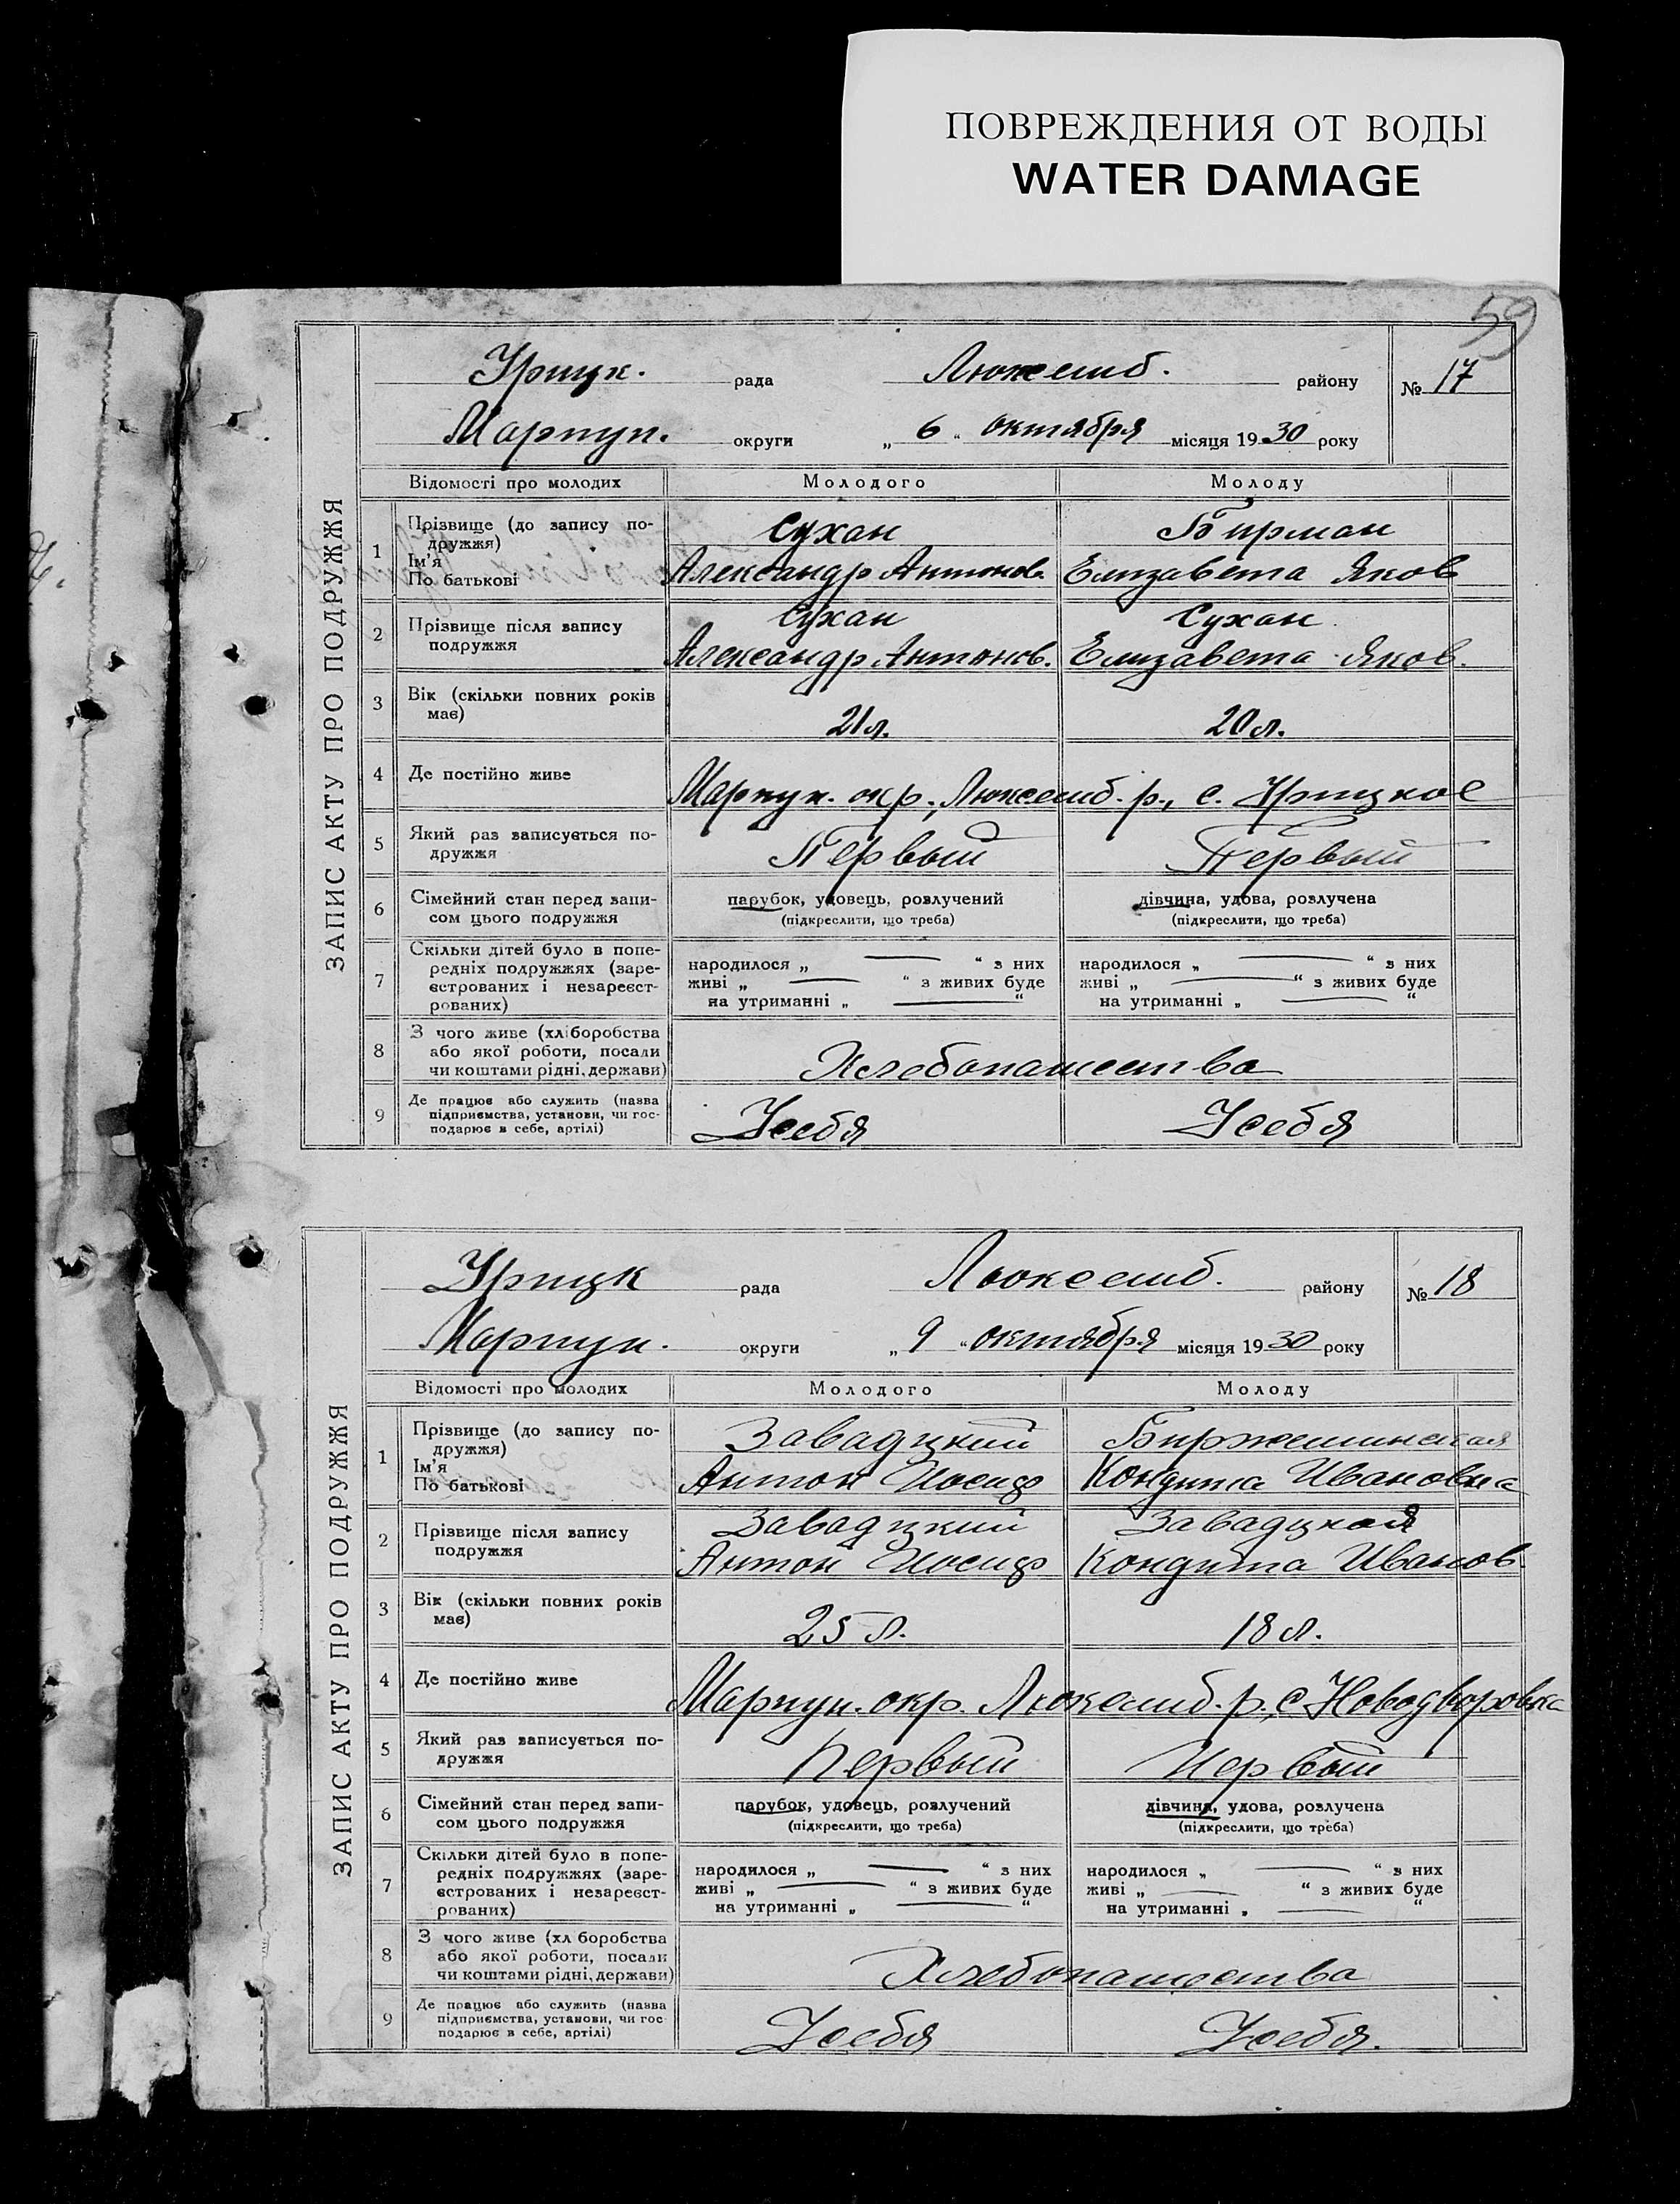 ПОВРЕЖДЕНИЯ ОТ ВОДЫ
WATER DAMAGE
59
ЗАПИС АКТУ ПРО ПОДРУЖЖЯ
Урицк. рада Люксемб. району № 17
Мариуп. округи „ 6 “ октября місяця 1930 року
Відомості про молодих Молодого Молоду
1 Прізвище (до запису по-
дружжя) Сухан Бирман
Ім'я
По батькові Александр Антонов. Елизавета Яков
2 Прізвище після запису Сухан Сухан
подружжя Александр Антонов. Елизавета Яков.
3 Вік (скільки повних років
має) 21 л. 20 л.
4 Де постійно живе Мариуп. окр., Люксемб. р., с. Урицкое
5 Який раз записується по-
дружжя Первый Первый
6 Сімейний стан перед запи- парубок, удовець, розлучений дівчина, удова, розлучена
сом цього подружжя (підкреслити, що треба) (підкреслити, що треба)
7 Скільки дітей було в попе-
редніх подружжях (заре- народилося „ — “ з них народилося „ — “ з них
єстрованих і незареєст- живі „ — “ з живих буде живі „ — “ з живих буде
рованих) на утриманні „ — “ на утриманні „ — “
8 З чого живе (хліборобства
або якої роботи, посади
чи коштами рідні, держави) Хлебопашества
9 Де працює або служить (назва
підприємства, установи, чи гос-
подарює в себе, артілі) У себя У себя
ЗАПИС АКТУ ПРО ПОДРУЖЖЯ
Урицк рада Люксемб. району № 18
Мариуп. округи „ 9 “ октября місяця 1930 року
Відомості про молодих Молодого Молоду
1 Прізвище (до запису по-
дружжя) Завадцкий
Ім'я
По батькові Антон Иосиф Кондита Ивановна
2 Прізвище після запису Завадцкий Завадцкая
подружжя Антон Иосиф Кондита Иванов.
3 Вік (скільки повних років
має) 25 л. 18 л.
4 Де постійно живе Мариуп. окр. Люксемб. р., с Новодворовка
5 Який раз записується по-
дружжя Первый Первый
6 Сімейний стан перед запи- парубок, удовець, розлучений дівчина, удова, розлучена
сом цього подружжя (підкреслити, що треба) (підкреслити, що треба)
7 Скільки дітей було в попе-
редніх подружжях (заре- народилося „ — “ з них народилося „ — “ з них
єстрованих і незареєст- живі „ — “ з живих буде живі „ — “ з живих буде
рованих) на утриманні „ — “ на утриманні „ — “
8 З чого живе (хл боробства
або якої роботи, посади
чи коштами рідні, держави) Хлебопашества
9 Де працює або служить (назва
підприємства, установи, чи гос-
подарює в себе, артілі) У себя У себя.